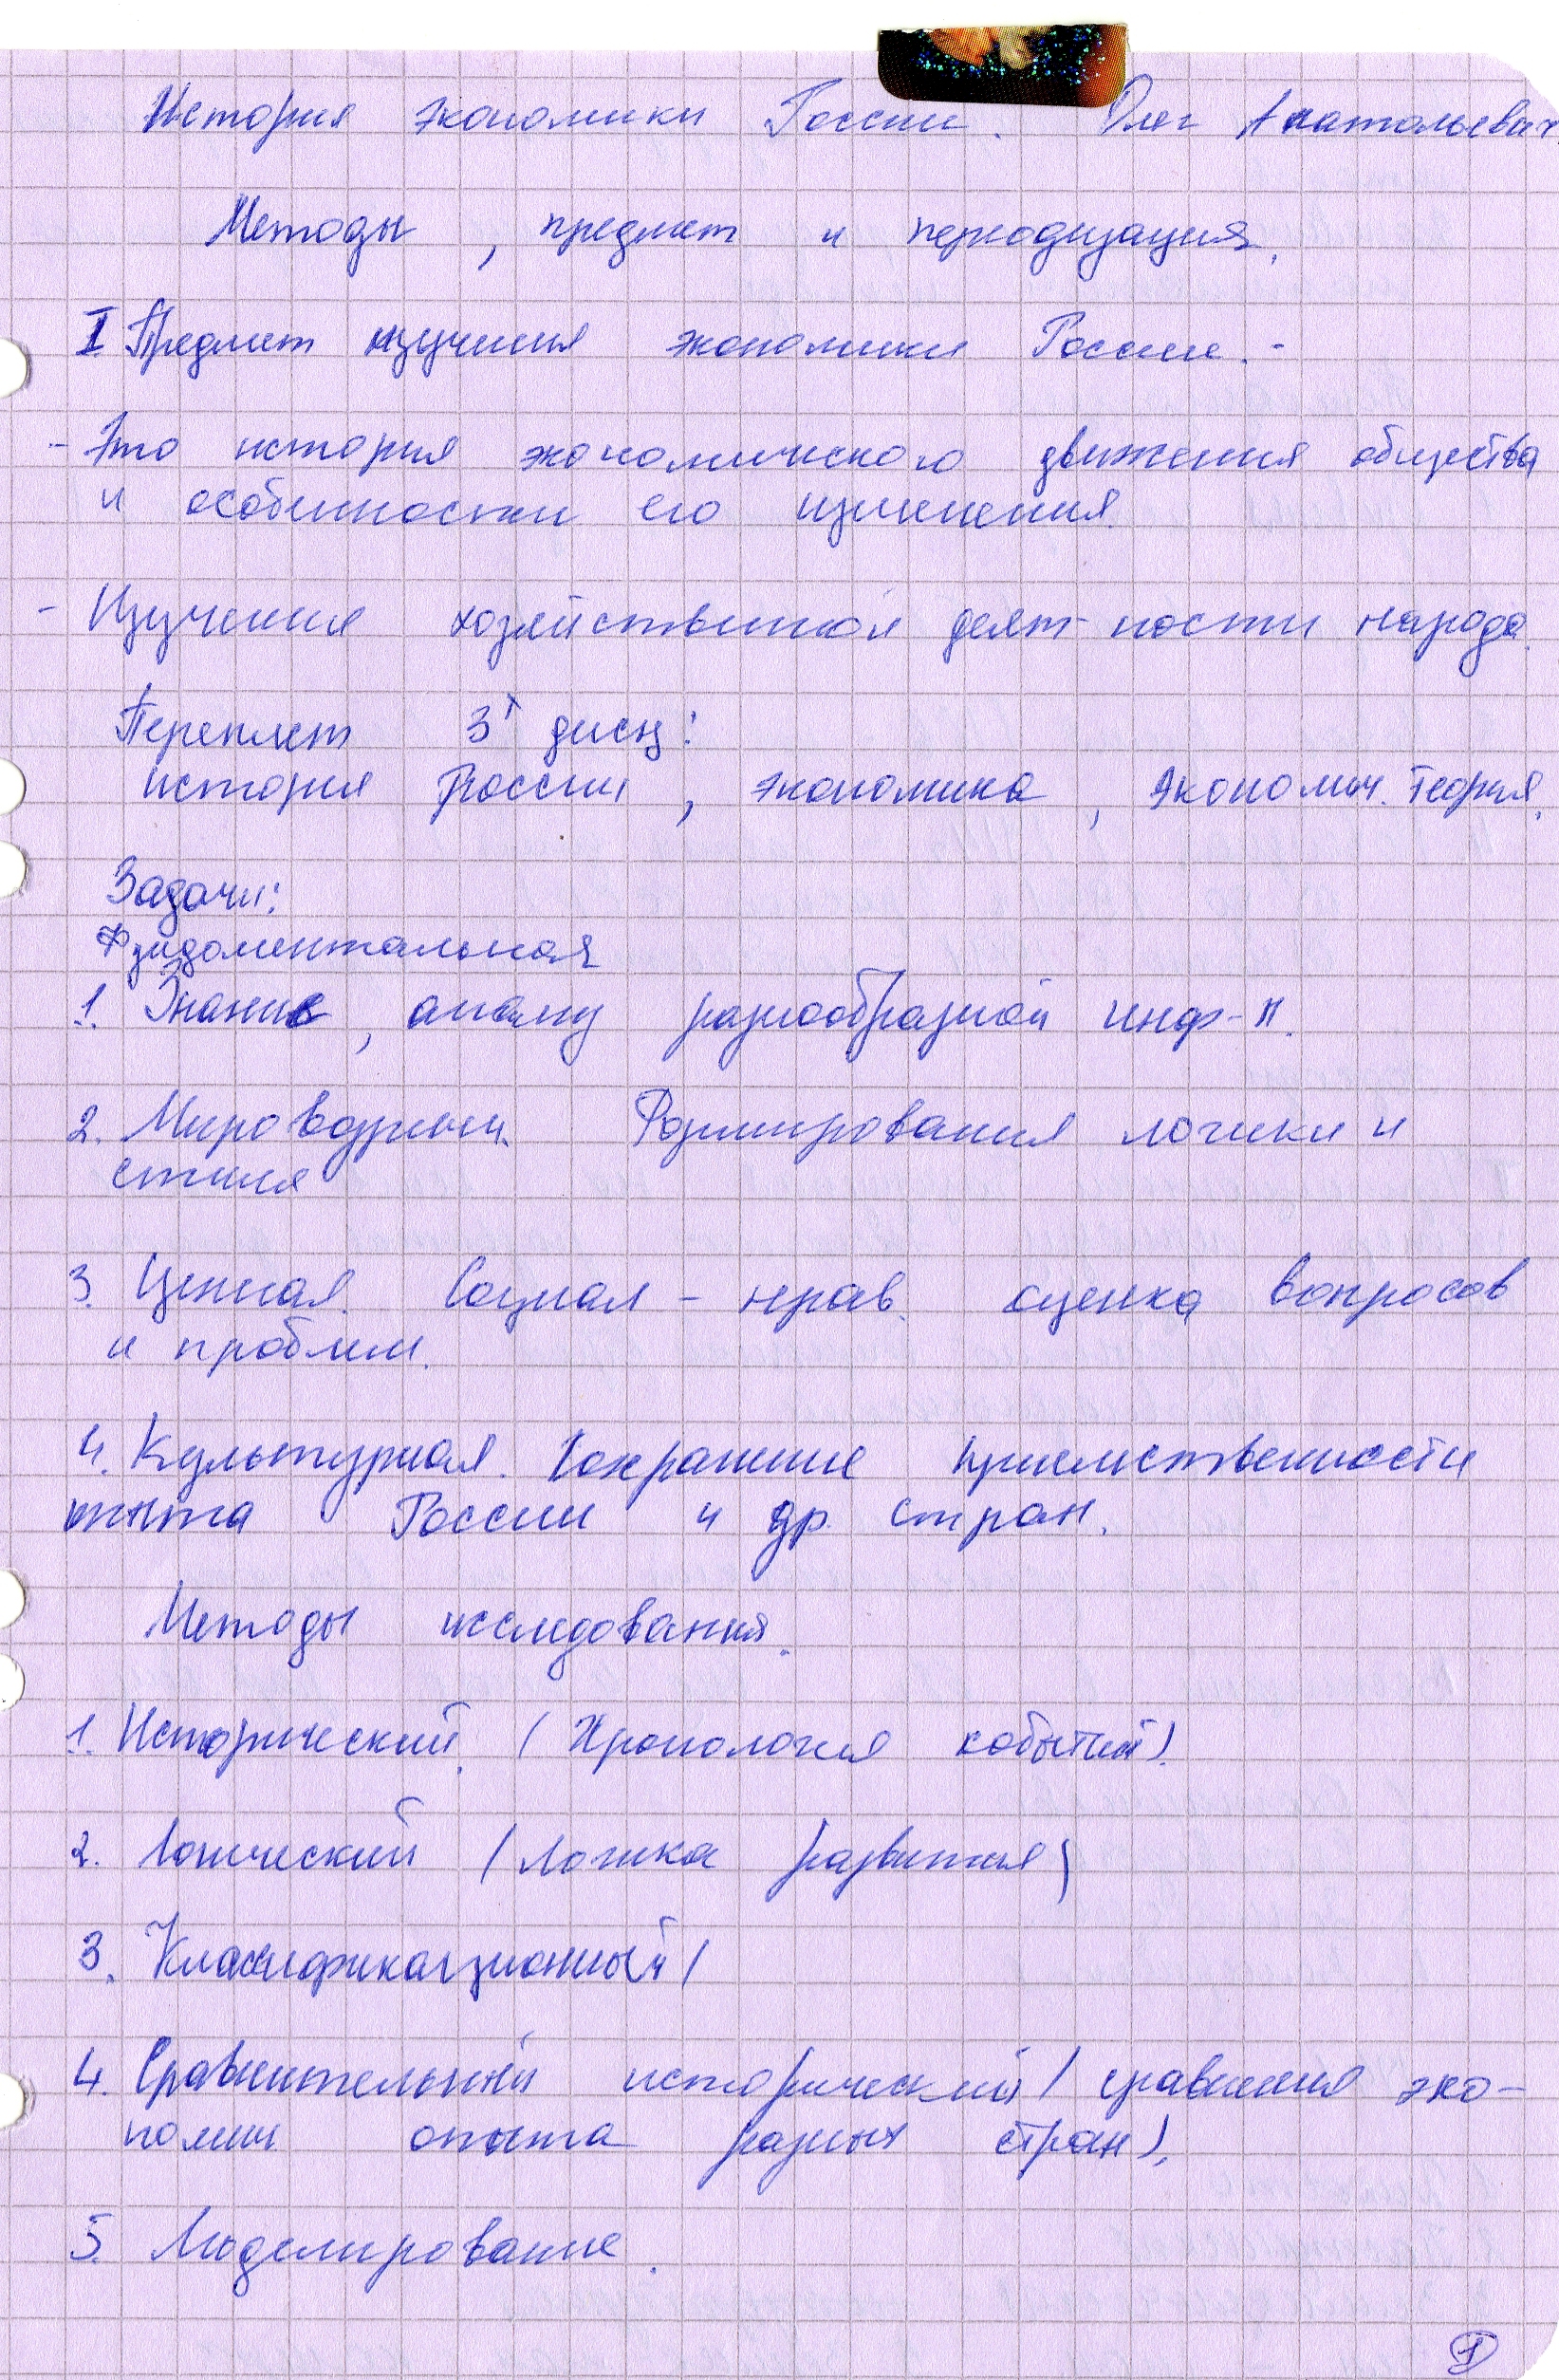 История экономики России. Олег Анатольевич
Методы, предмет и периодизация.
I. Предмет изучения экономики России. -
- Это история экономического движения общества
и особенности его изменения.
- Изучения хозяйственной деят-ности народа.
Переплет 3х дисц:
история России, экономика, экономич. теория.
Задачи:
Фундоментальная
1. Знание, анализ разнообразной инф-и.
2. Мировоззренч. Формирования логики и
стиля
3. Ценная. Социал-нрав. оценка вопросов
и проблем.
4. Культурная. Сохранение приемственности
опыта России и др. стран.
Методы исследования.
1. Исторический. (Хронология событий).
2. Логический (логика развития)
3. Классификационный (
4. Сравнительный исторический (сравнения эко-
номич опыта разных стран).
5. Моделирование.
1